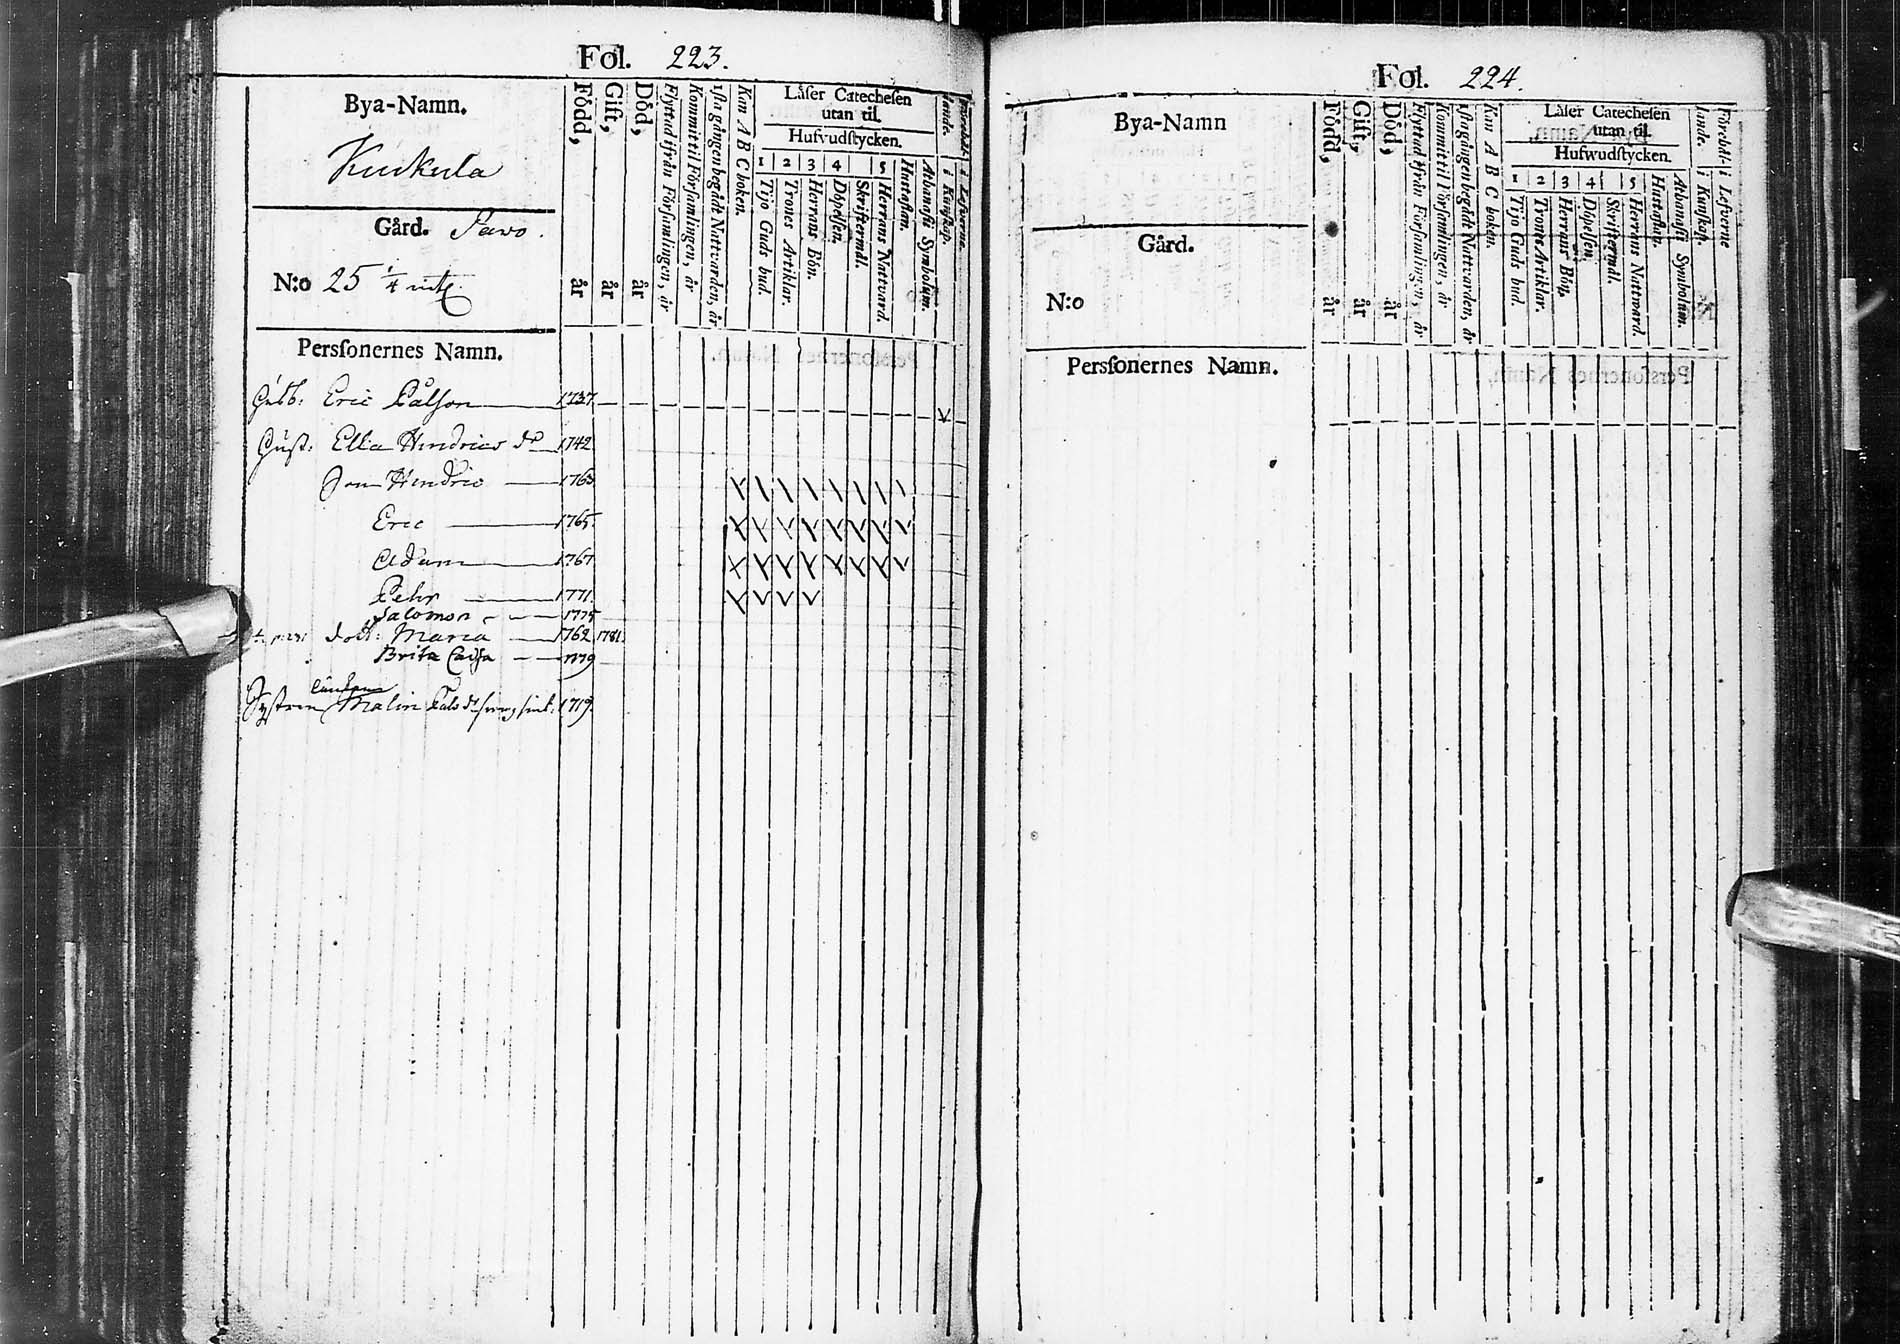 Fol. 223.
Bya-Namn.
Kurkula
Gård. Pavo.
N:o 25 1/4 mtl.
Persſonernes Namn.
Född, år
Gift, år
Död, år
Flyttad ifrån Förſamlingen, år
Kommit til Förſamlingen, år
1ſta gången begådt Nattvarden, år
Kan A B C boken.
Låſer Catecheſen
utan til.
Hufvudſtycken.
1 2 3 4 5
Tijo Guds bud.
Trones Artiklar.
Herrans Bön.
Döpelſen.
Skriftermål.
Herrans Nattvard.
Huſtaflan.
Athanaſii Symbolum.
i Kunſkap.
i Lefverne.
Eric Pålſon 1737
Huſt: Ellia Hindrics dr 1742
Son Hindric 1763
Eric 1765.
Adam 1767
Pehr 1771.
Salomon 1775
dott: Maria 1762. 1781.
Brita Cajſa 1779
Syſtren Malin Påls dr 1719.
Fol. 224.
Bya-Namn
Gård.
N:o
Persſonernes Namn.
Född, år
Gift, år
Död, år
Flyttad ifrån Förſamlingen, år
Kommit til Förſamlingen, år
1ſta gången begådt Nattvarden, år
Kan A B C boken.
Låſer Catecheſen
utan til.
Hufwudſtycken.
1 2 3 4 5
Tijo Guds bud.
Trones Artiklar.
Herrans Bön.
Döpelſen.
Skriftermål.
Herrans Nattward.
Huſtaflan.
Athanaſii Symbolum.
Förehål-
lande.
i Kunſkap.
i Lefverne